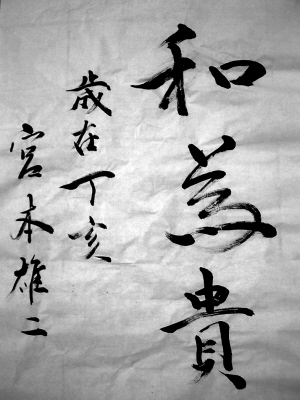 和為貴
歳在丁亥
宮本雄二